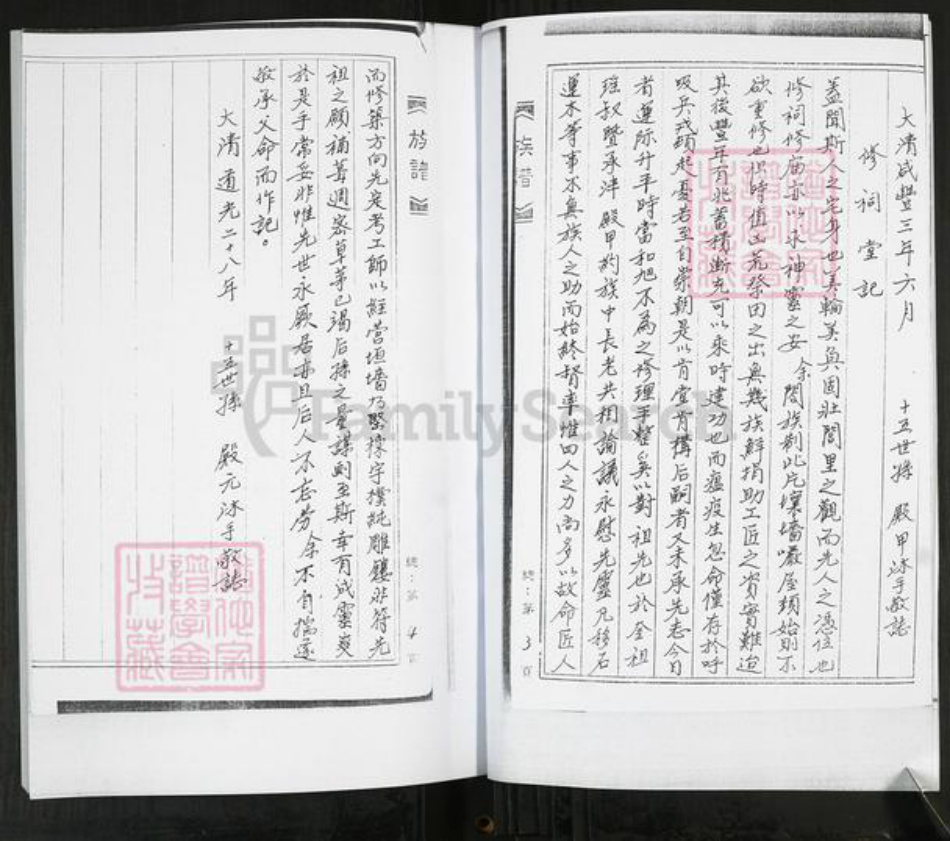 大清咸豐三年六月 十五世孫 殿甲沐手敬誌
修祠堂記
蓋聞斯人之宅身也美輪美奐固壯閭里之觀而先人之憑位也
修祠修廟亦以永神靈之安余閤族刱此片壞墻嚴屋頹始則不
欲重修也但時值凶荒祭田之出無幾族鮮捐助工匠之資實難迨
其後豐年有兆蓄積漸充可以乘時建功也而瘟疫生忽命僅存於呼
吸兵戎頻起憂若至自崇朝是以肯堂肯構后嗣者又未承先志今日
者運際升平時當和旭不為之修理平整奚以對祖先也於全祖
珵叔暨承泮殿甲約族中長老共相論議永慰先靈凡移石
運木等事不無族人之助而始終督率惟四人之力尚多以故命匠人
族譜
總：第 3 頁
而修築方向先定考工師以經營垣墻乃堅採宇樸純雕鏤非符先
祖之願補葺週密草茅已竭后孫之量謀到至斯幸有成靈爽
於是乎常妥非惟先世永厥居亦且后人不忘勞余不自揣遂
敬承父命而作記。
大清道光二十八年 十五世孫 殿元沐手敬誌
族譜
總：第 4 頁
FamilySearch